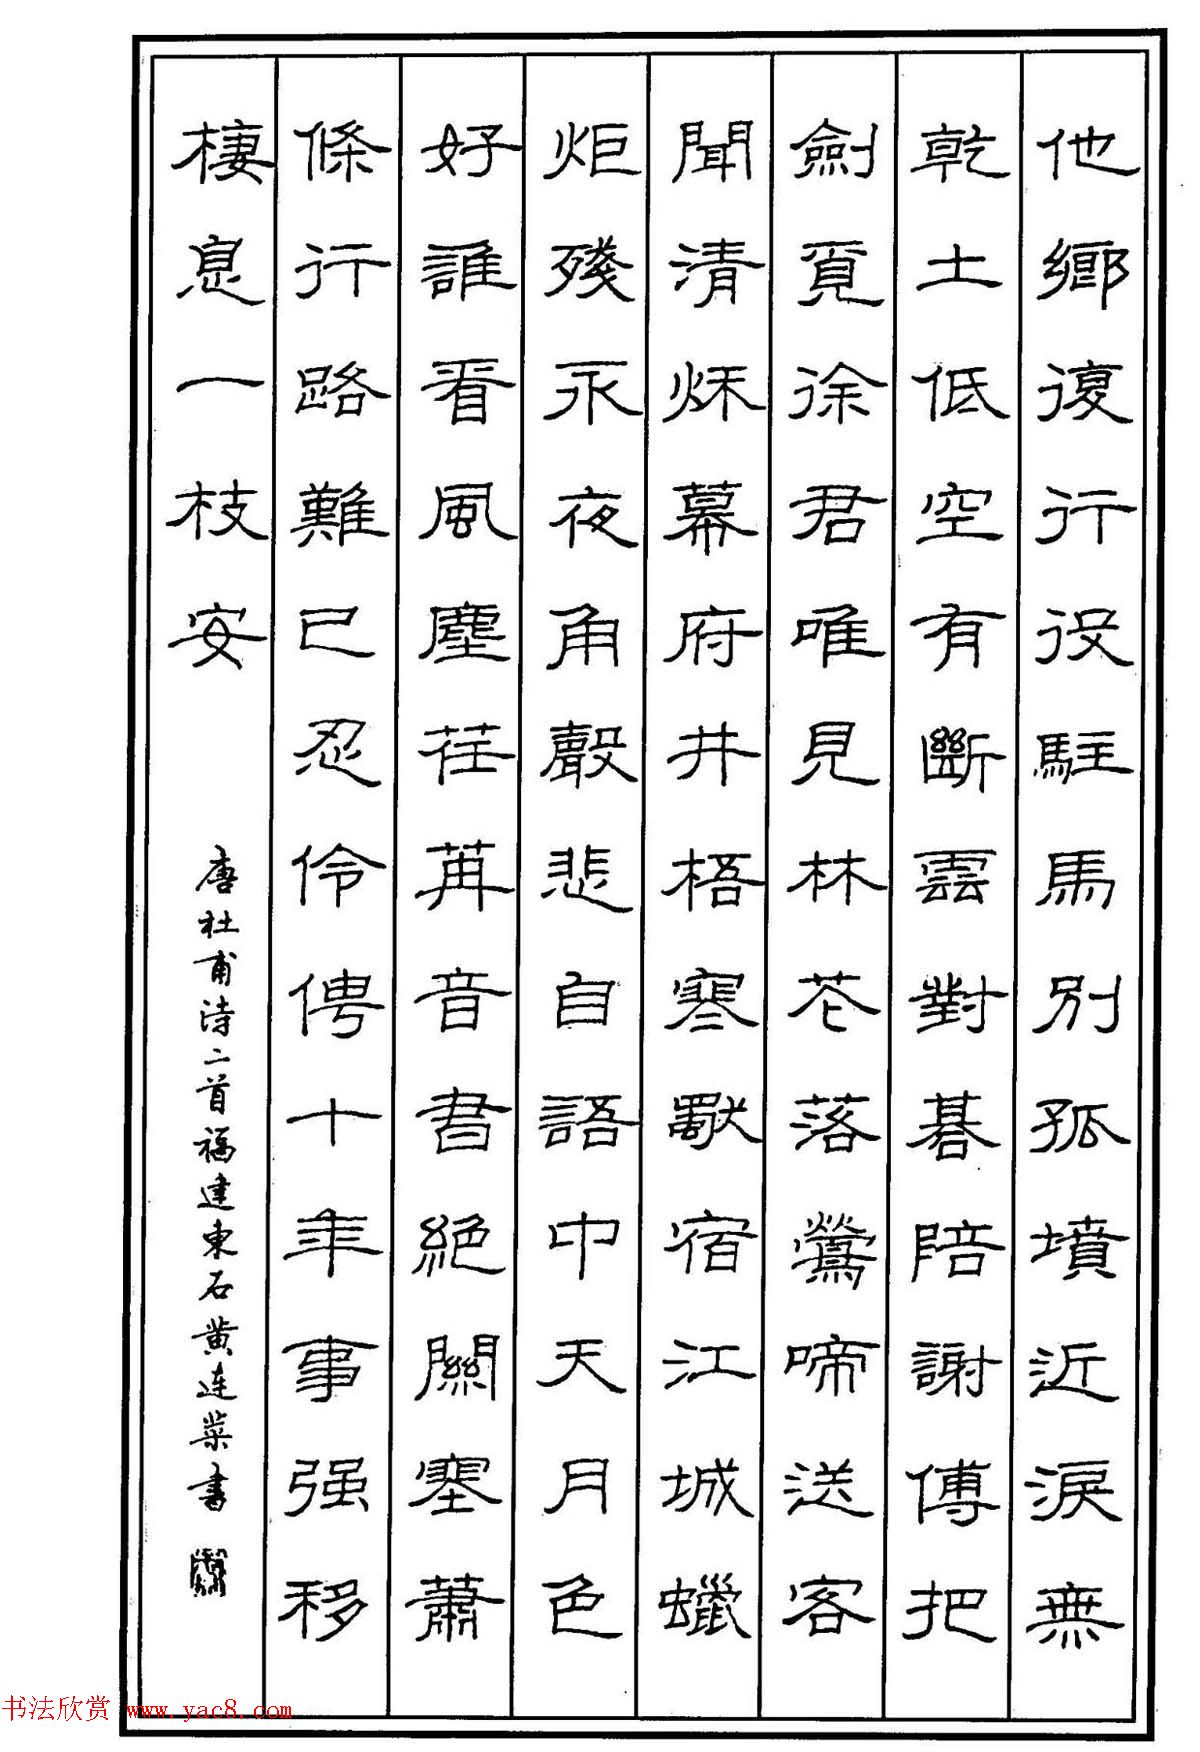 他鄉復行役駐馬別孤墳近淚無
乾土低空有斷雲對碁陪謝傅把
劍覓徐君唯見林花落鶯啼送客
聞清秌幕府井梧寒獸宿江城蠟
炬殘永夜角聲悲自語中天月色
好誰看風塵荏苒音書絕關塞蕭
條行路難已忍伶俜十年事强移
棲息一枝安
唐杜甫诗二首福建東石黄连菜書
书法欣赏 www.yac8.com